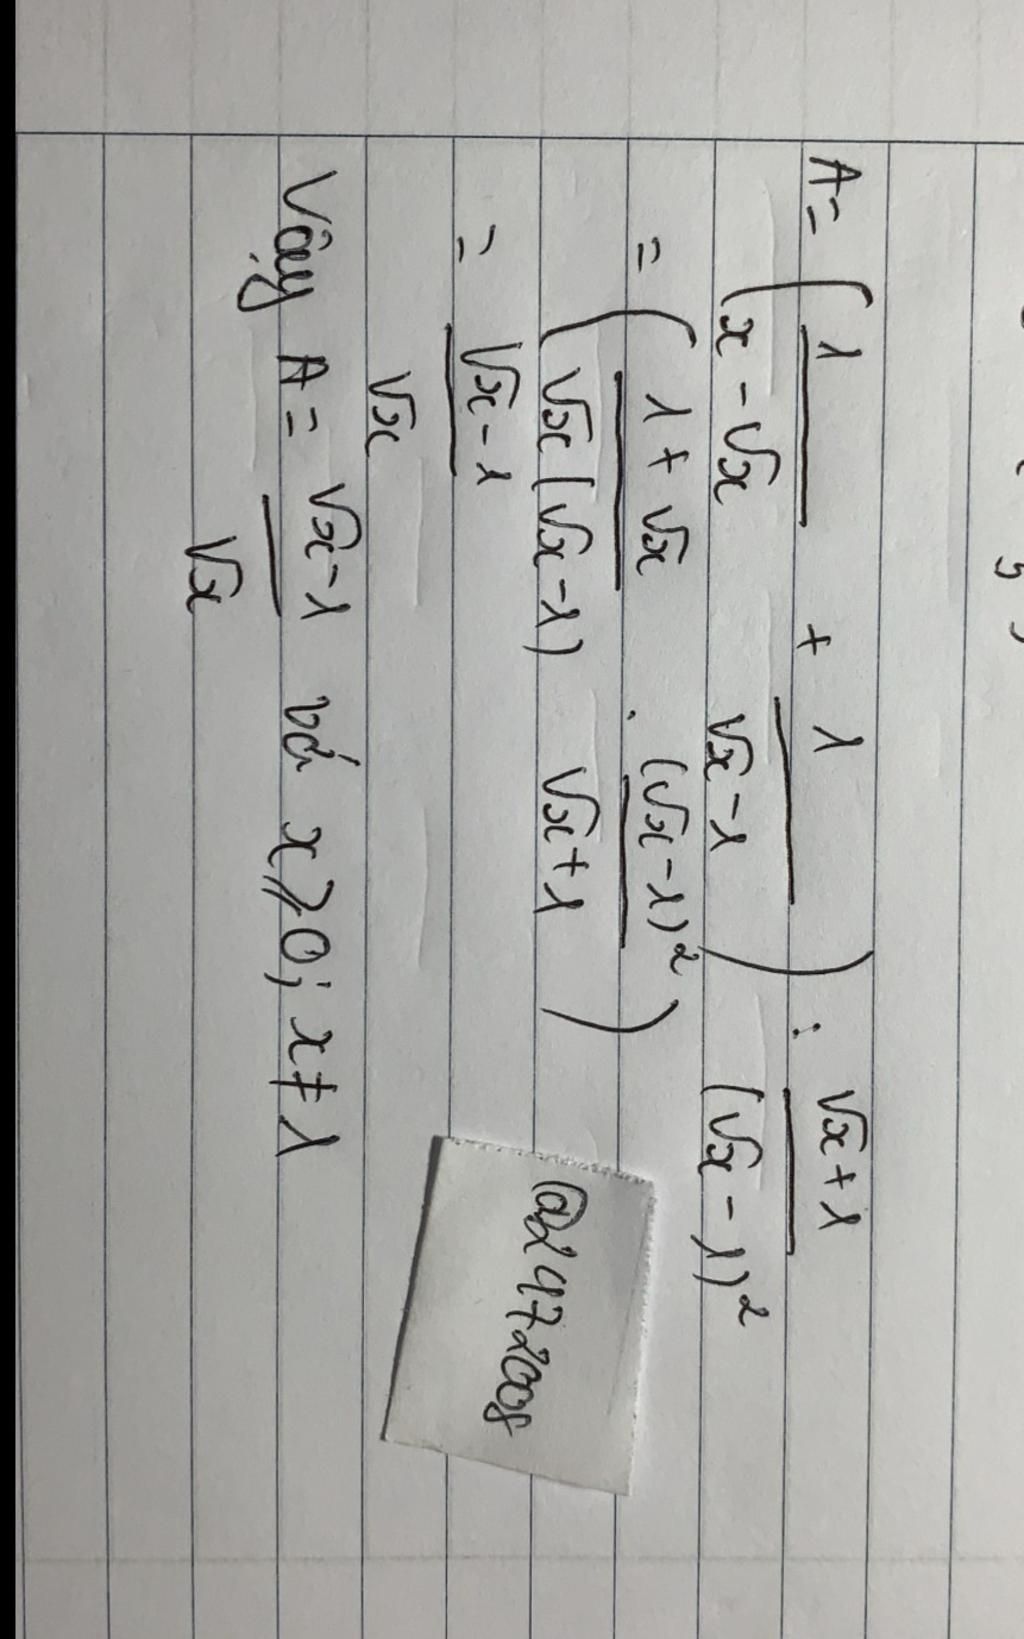 A = ( 1 / (x - √x) + 1 / (√x - 1) ) : (√x + 1) / (√x - 1)²
= ( (1 + √x) / (√x (√x - 1)) . (√x - 1)² / (√x + 1) )
= (√x - 1) / √x
Vậy A = (√x - 1) / √x với x ≥ 0; x ≠ 1
@2472008